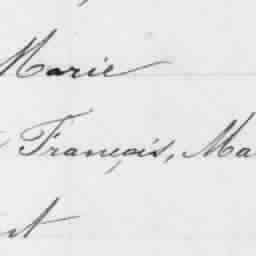 Marie
François, Ma
nt